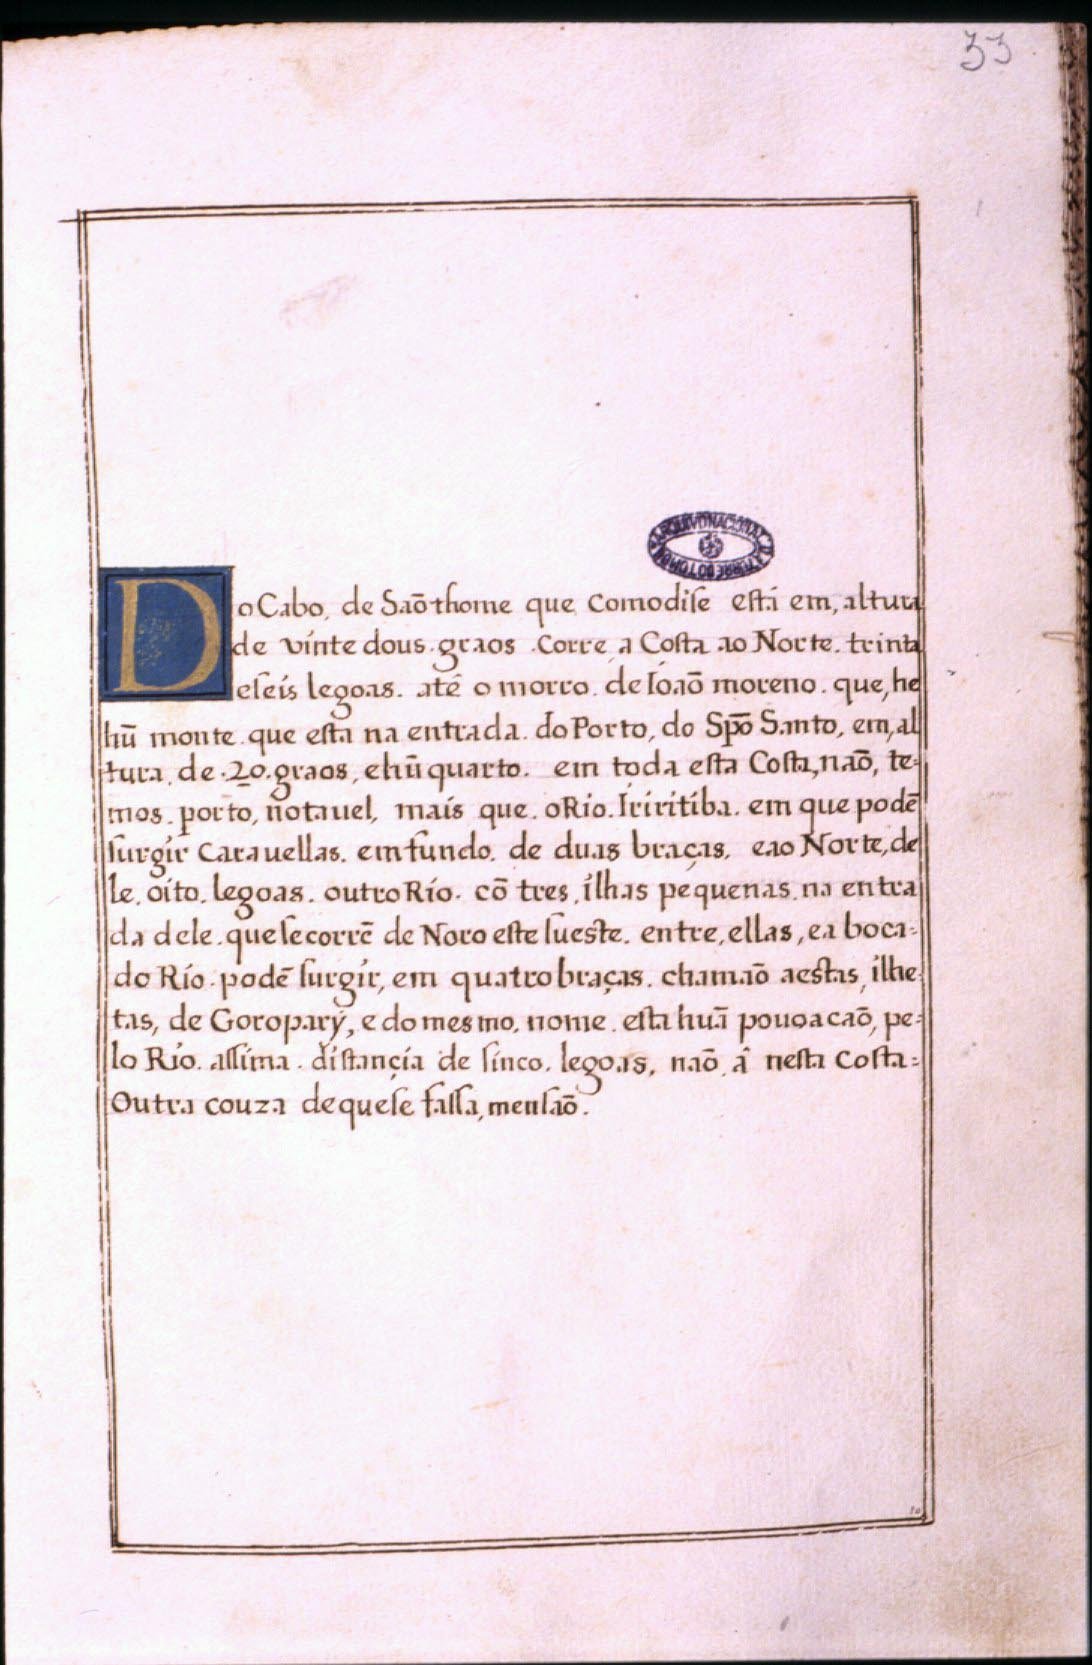 33
ARQUIVO NACIONAL DA TORRE DO TOMBO
Do Cabo, de Saõ thome que Comodise está em, altura
de vinte dous . graos . Corre, a Costa ao Norte . trinta
eseis legoas . atê o morro . de Ioaõ moreno . que, he
hũ monte . que esta na entrada . do Porto, do Spõ Santo, em, al
tura . de . 20 . graos, ehũ quarto . em toda esta Costa, naõ, te=
mos . porto, notauel, mais que . o Rio . Iriritiba . em que podẽ
surgir Carauellas . em fundo . de duas braças . eao Norte, de
le . oito . legoas . outro Rio . cõ tres . ilhas pequenas . na entra
da dele . que secorrẽ de Noroeste sueste . entre, ellas, ea boca=
do Rio . podẽ surgir, em quatro braças . chamaõ aestas, ilhe=
tas, de Goropary, e do mesmo . nome . esta huã pouoacaõ, pe=
lo Rio . assima . distançia de sinco . legoas, naõ â nesta Costa=
Outra couza dequese fassa, mensaõ .
10